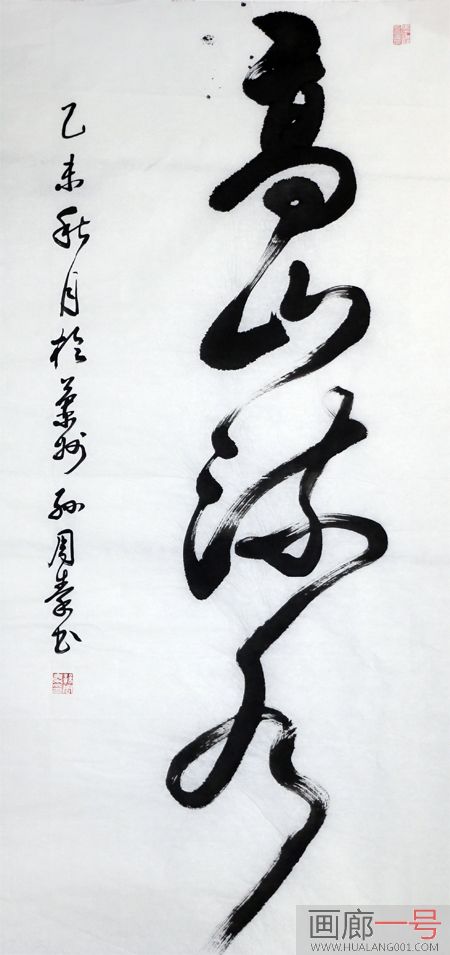 高山流水
乙未秋月於州 孙周书
画廊一号
WWW.HUALANG001.COM